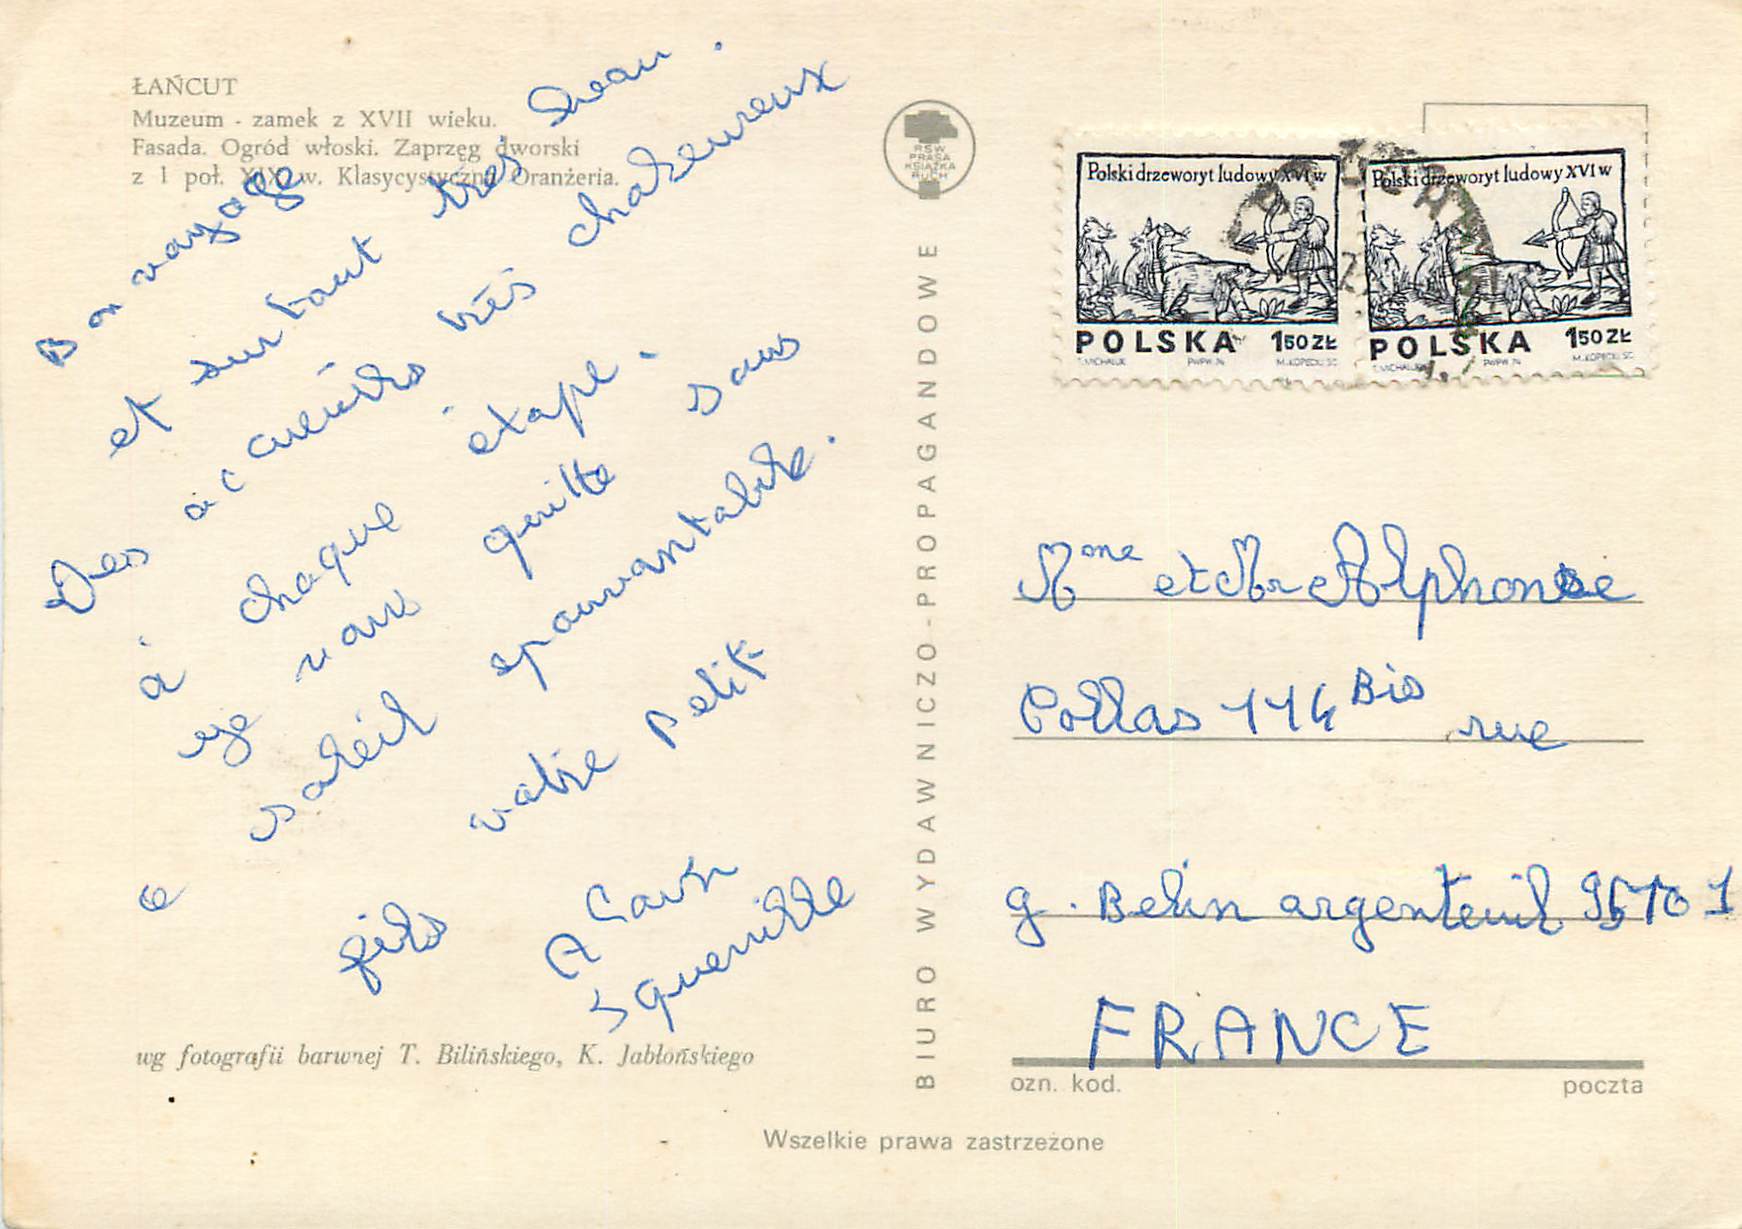 ŁAŃCUT
Muzeum - zamek z XVII wieku.
Fasada. Ogród włoski. Zaprzęg dworski
z I poł. XIX w. Klasycystyczna Oranżeria.
Bon voyage
et surtout très beau.
Des accueils très chaleureux
à chaque étape.
je vous quitte sous
e soleil epouvantable.
votre petit
fils
squerille
wg fotografii barwnej T. Bilińskiego, K. Jabłońskiego
BIURO WYDAWNICZO-PROPAGANDOWE
RSW
PRASA
KSIĄŻKA
RUCH
Polski drzeworyt ludowy XVI w
POLSKA 150 ZŁ
T. MICHALUK PWPW 74 M. KOPECKI SC.
Polski drzeworyt ludowy XVI w
POLSKA 150 ZŁ
T. MICHALUK PWPW 74 M. KOPECKI SC.
Mme et Mr Alphonse
Collas 114 Bis rue
g. Belin argenteuil 95101
FRANCE
ozn. kod. poczta
Wszelkie prawa zastrzeżone